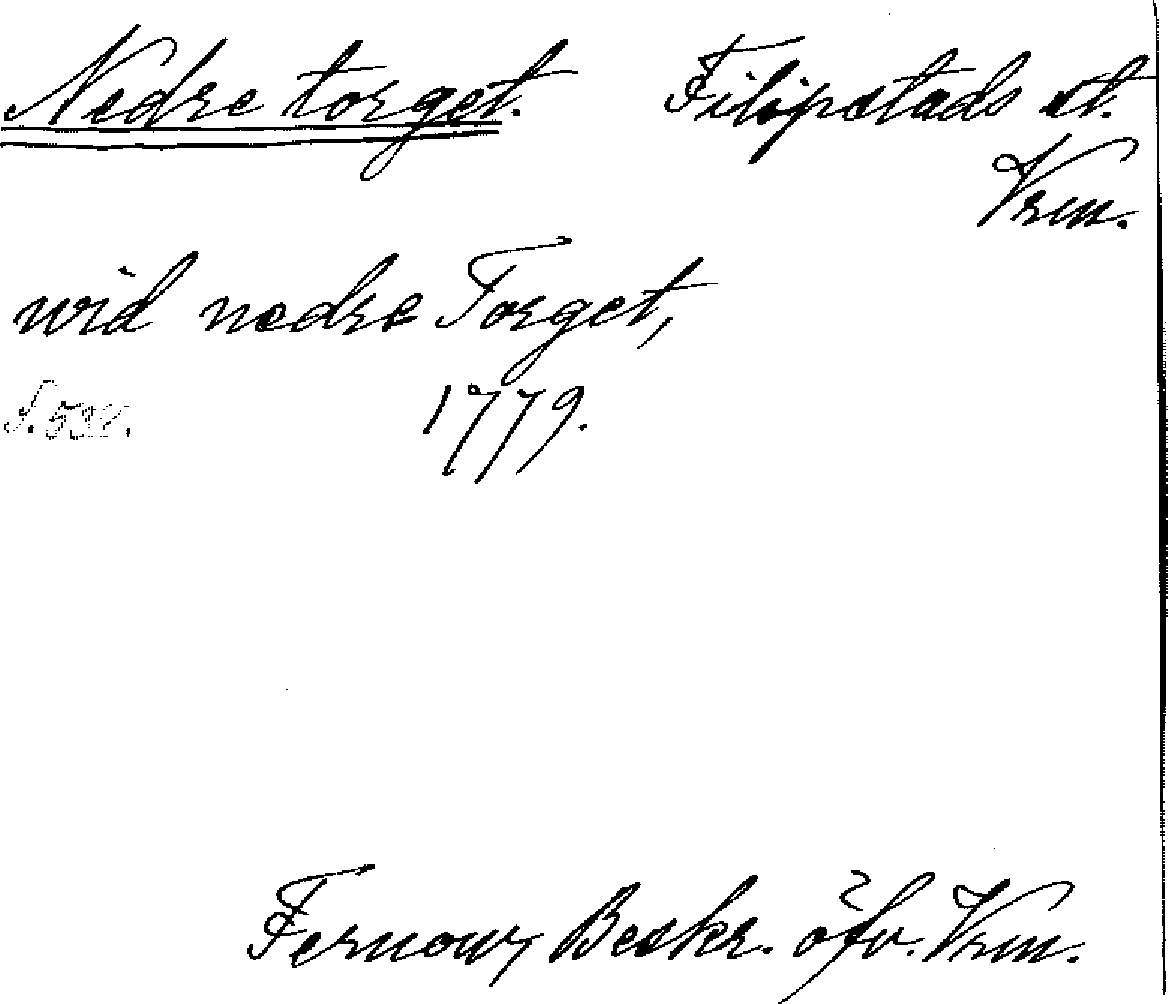 Nedre torget. Filipstads st.
Vrm.
wid nedre Torget,
1779.
Fernow, Beskr. öfv. Vrm.